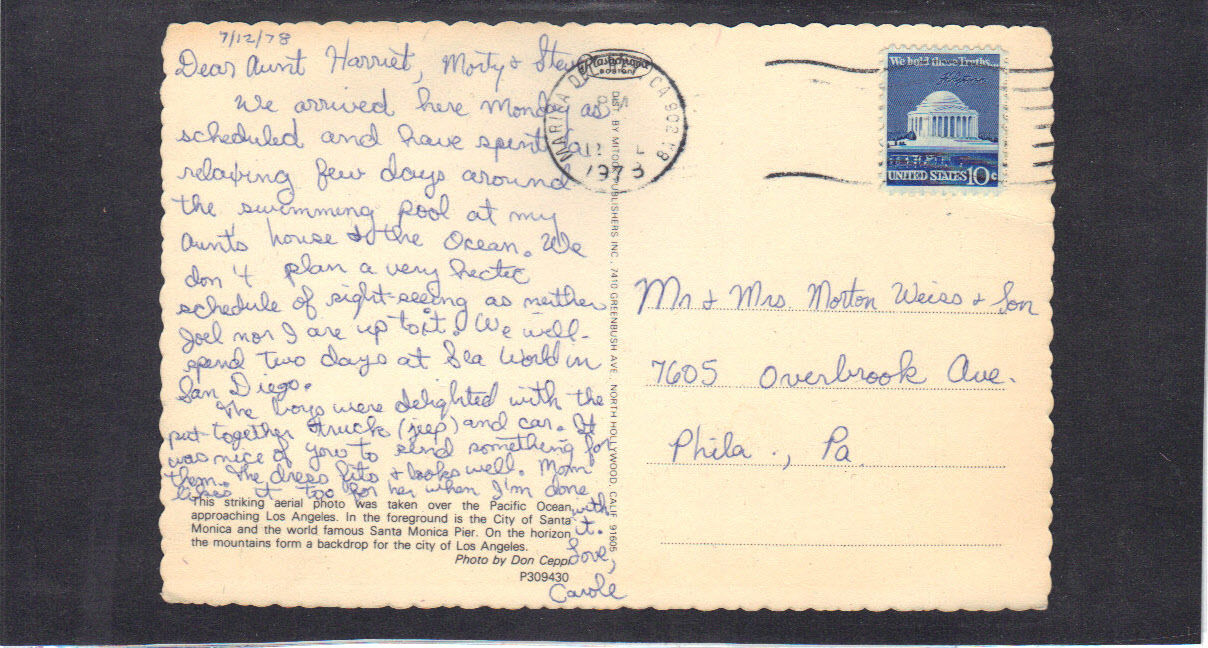 7/12/78
Dear Aunt Harriet, Morty & Steve
We arrived here Monday as
scheduled and have spent a
relaxing few days around
the swimming pool at my
aunt's house & the Ocean. We
don't plan a very hectic
schedule of sight-seeing as neither
Joel nor I are up to it. We will
spend two days at Sea World in
San Diego.
The boys were delighted with the
put-together truck (jeep) and car. It
was nice of you to send something for
them. The dress fits & looks well. Mom
likes it too for her when I'm done
with
it.
Love,
Carole
This striking aerial photo was taken over the Pacific Ocean
approaching Los Angeles. In the foreground is the City of Santa
Monica and the world famous Santa Monica Pier. On the horizon
the mountains form a backdrop for the city of Los Angeles.
Photo by Don Ceppi
P309430
BOSTON
DIST. BY MITOCK PUBLISHERS INC., 7410 GREENBUSH AVE. NORTH HOLLYWOOD, CALIF. 91605
MARINA DEL REY, CA 902
PM
12
1978
We hold these Truths...
UNITED STATES 10c
Mr & Mrs. Morton Weiss & Son
7605 Overbrook Ave.
Phila., Pa.